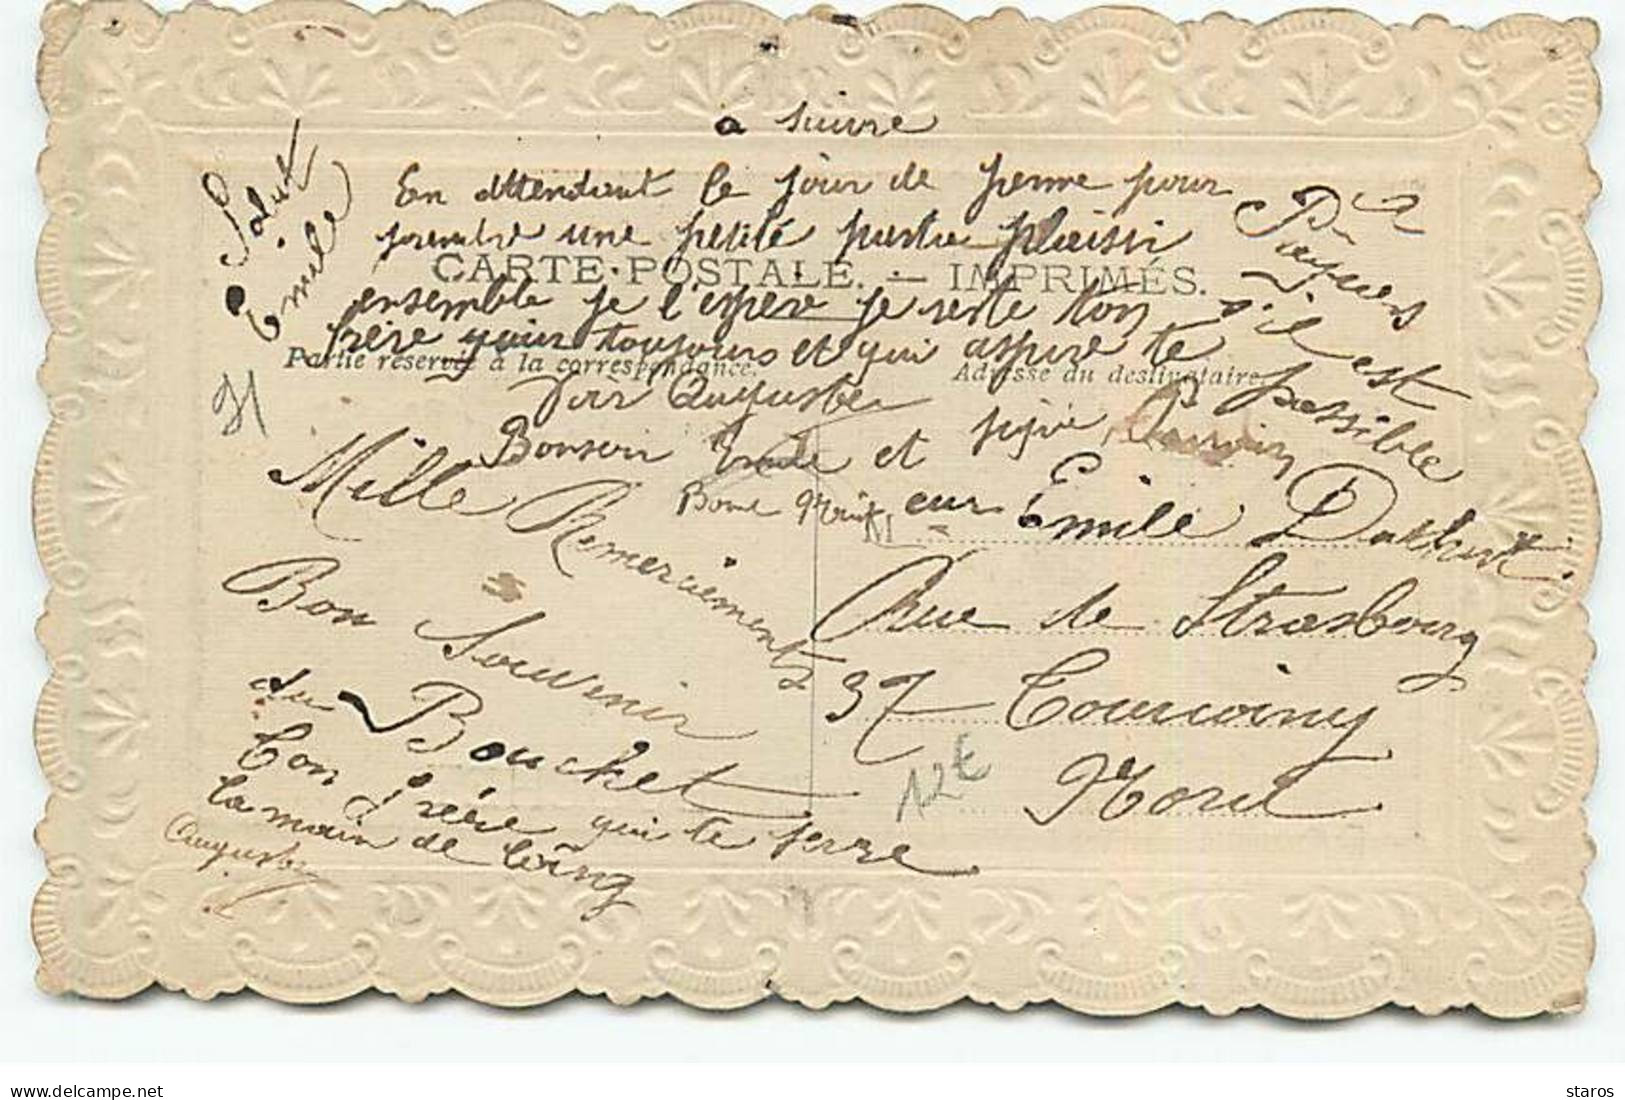 a suivre
Salut
Emile
En attendant le jour de perme pour
prendre une petite partie plaisir
CARTE POSTALE. — IMPRIMÉS.
ensemble je l'espère je reste ton
frère pour toujours et qui aspire te
Partie réservée à la correspondance.
Adresse du destinataire.
Voir Auguste
a
Pâques
s'il est
possible
Bonsoir Emile et
Bonne Nuit
Mille Remerciements
Bon Souvenir
du Bouchet
Ton frère qui te serre
la main de loing
Auguste
M eur Emile
Rue de Strasbourg
37 Tourcoing
Nord
12€
staros